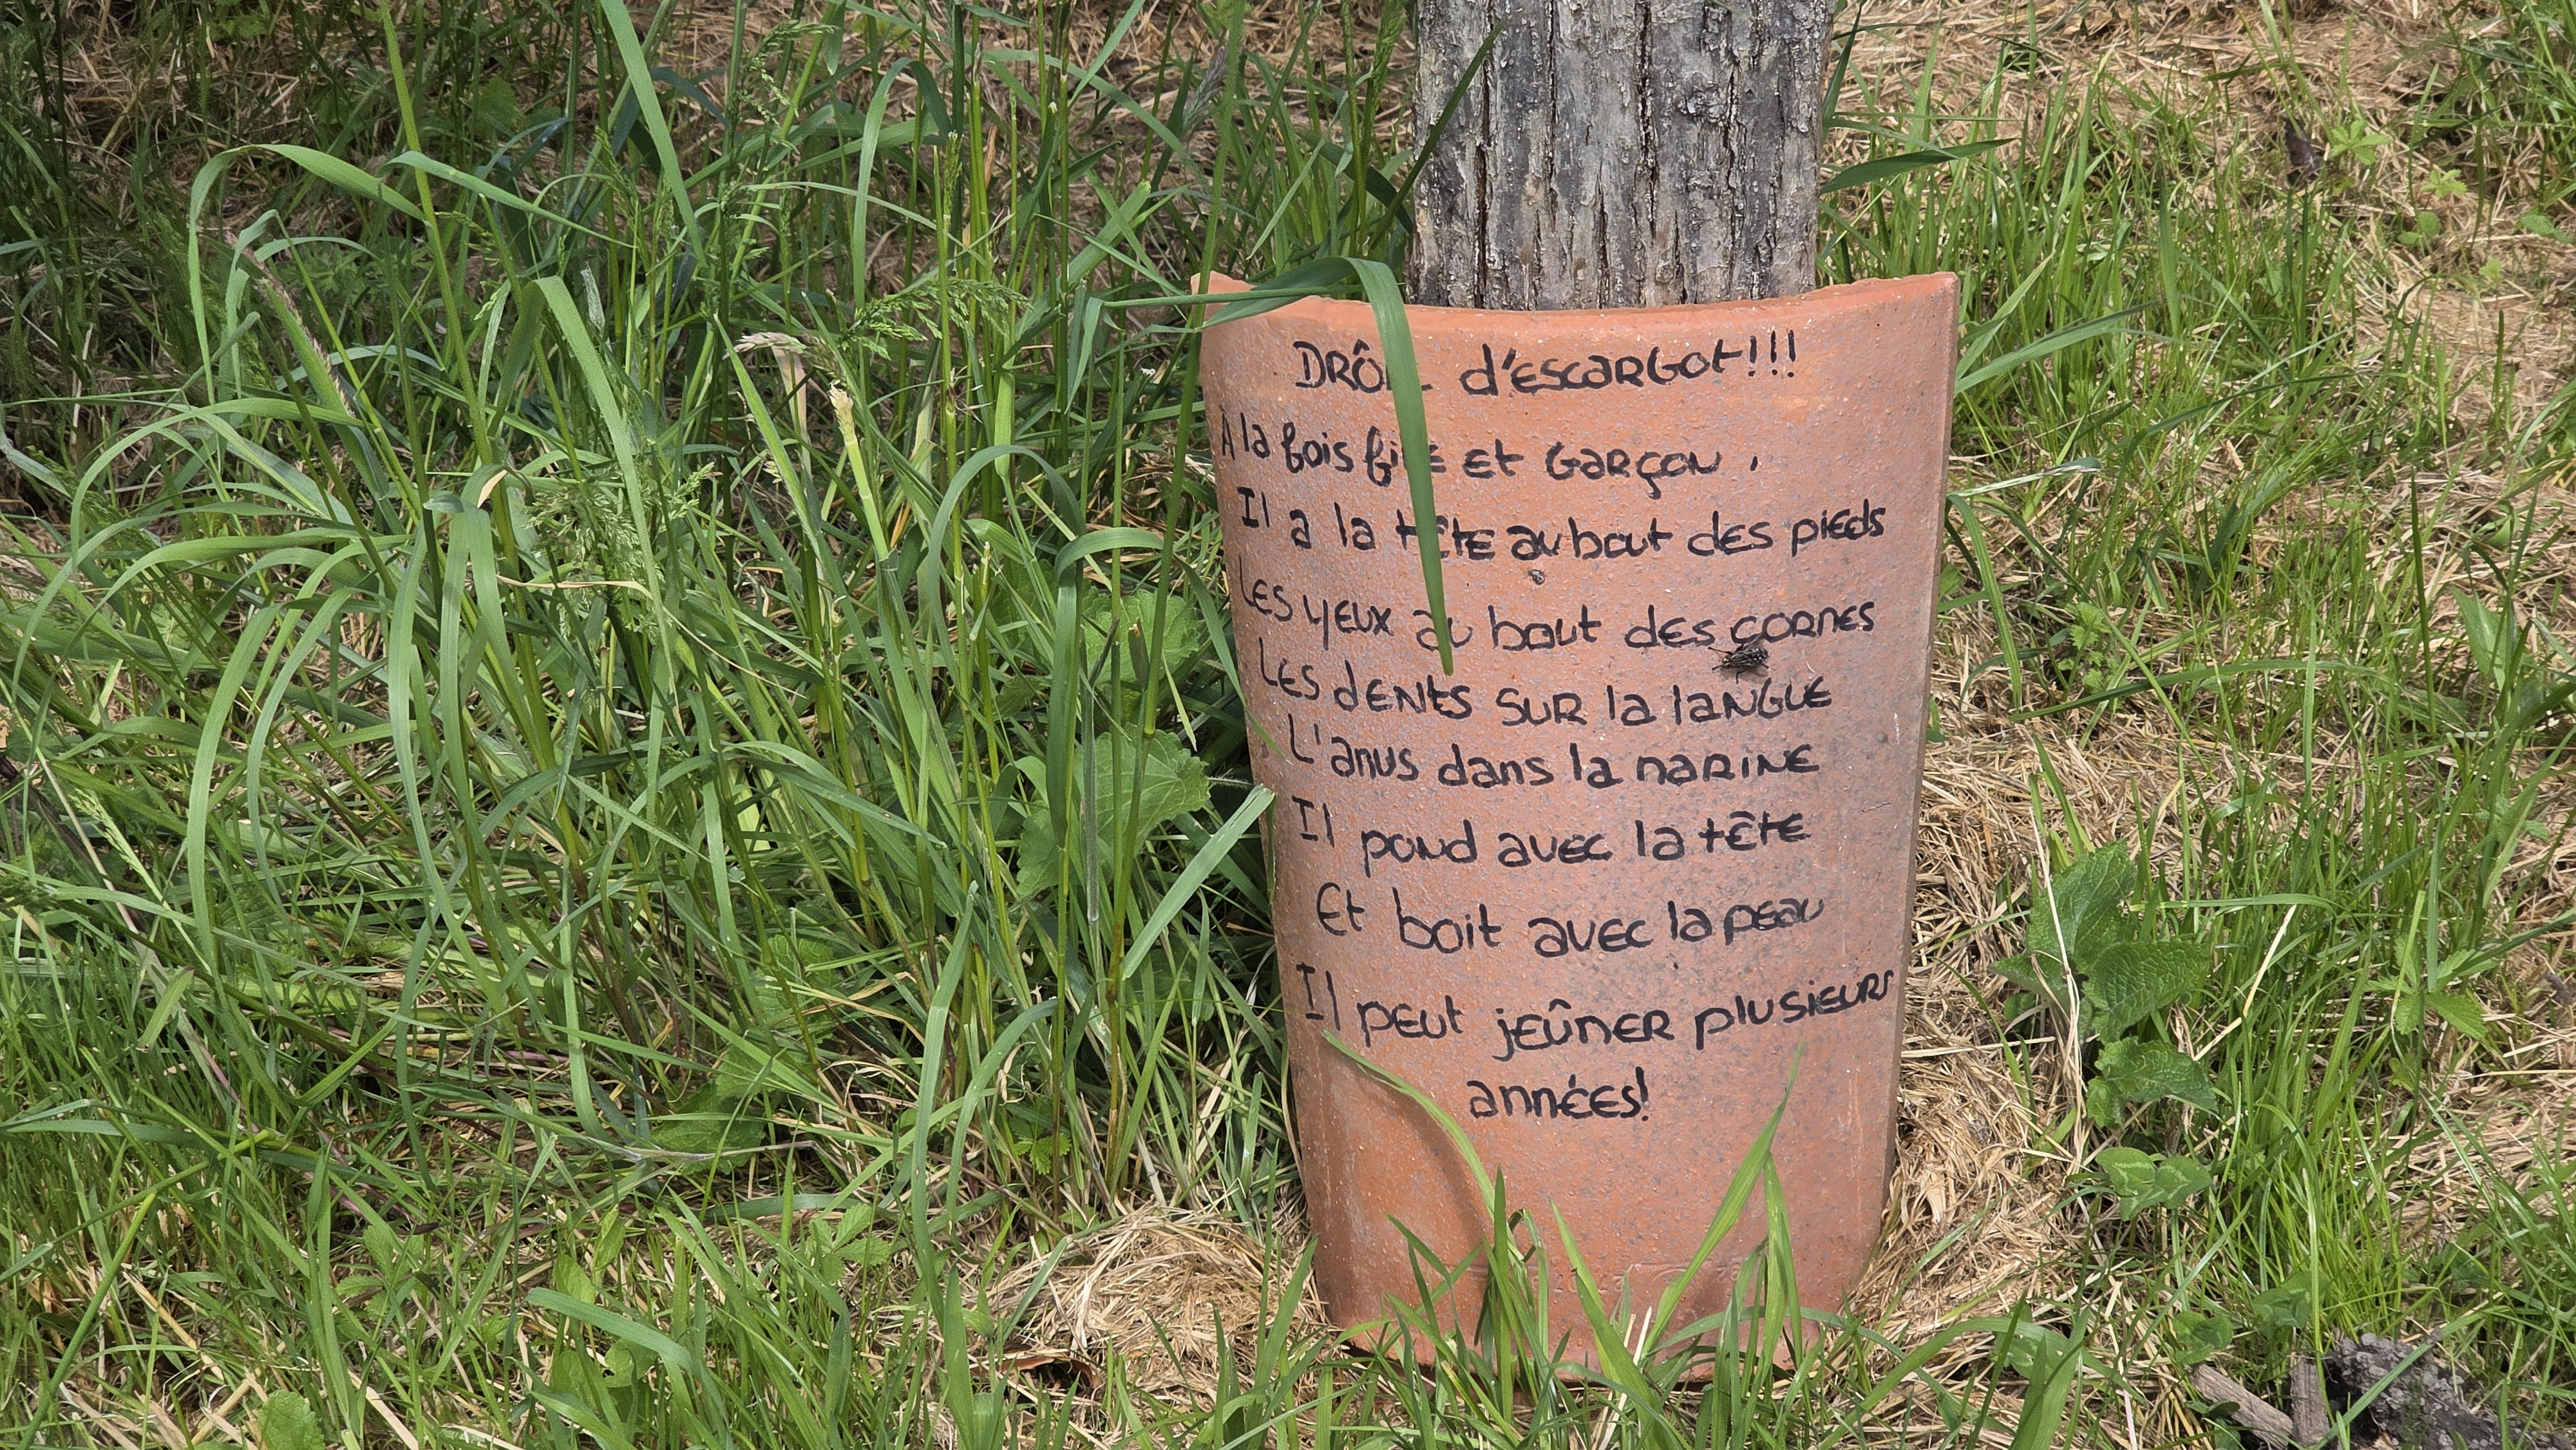 DRÔLE d'ESCARGOt!!!
À la fois fille et GARÇON.
Il a la tête au bout des pieds
Les yeux au bout des cornes
Les dents sur la langue
L'anus dans la narine
Il pond avec la tête
Et boit avec la peau
Il peut jeûner plusieurs
années!